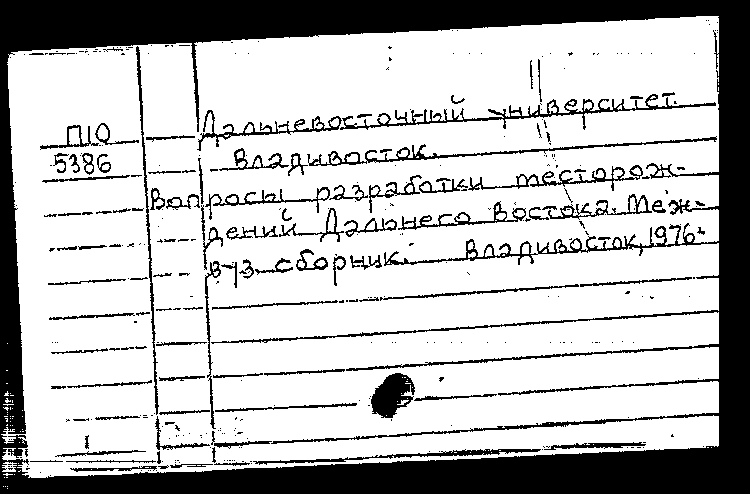 П10
5386
Дальневосточный университет.
Владивосток.
Вопросы разработки месторож-
дений Дальнего Востока. Меж-
вуз. сборник. Владивосток, 1976-
1